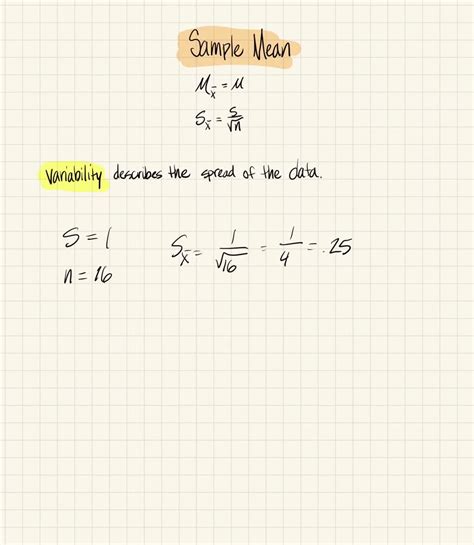 Sample Mean
μx̄ = μ
Sx̄ = s/√n
Variability describes the spread of the data.
S = 1
n = 16
Sx̄ = 1/√16 = 1/4 = .25